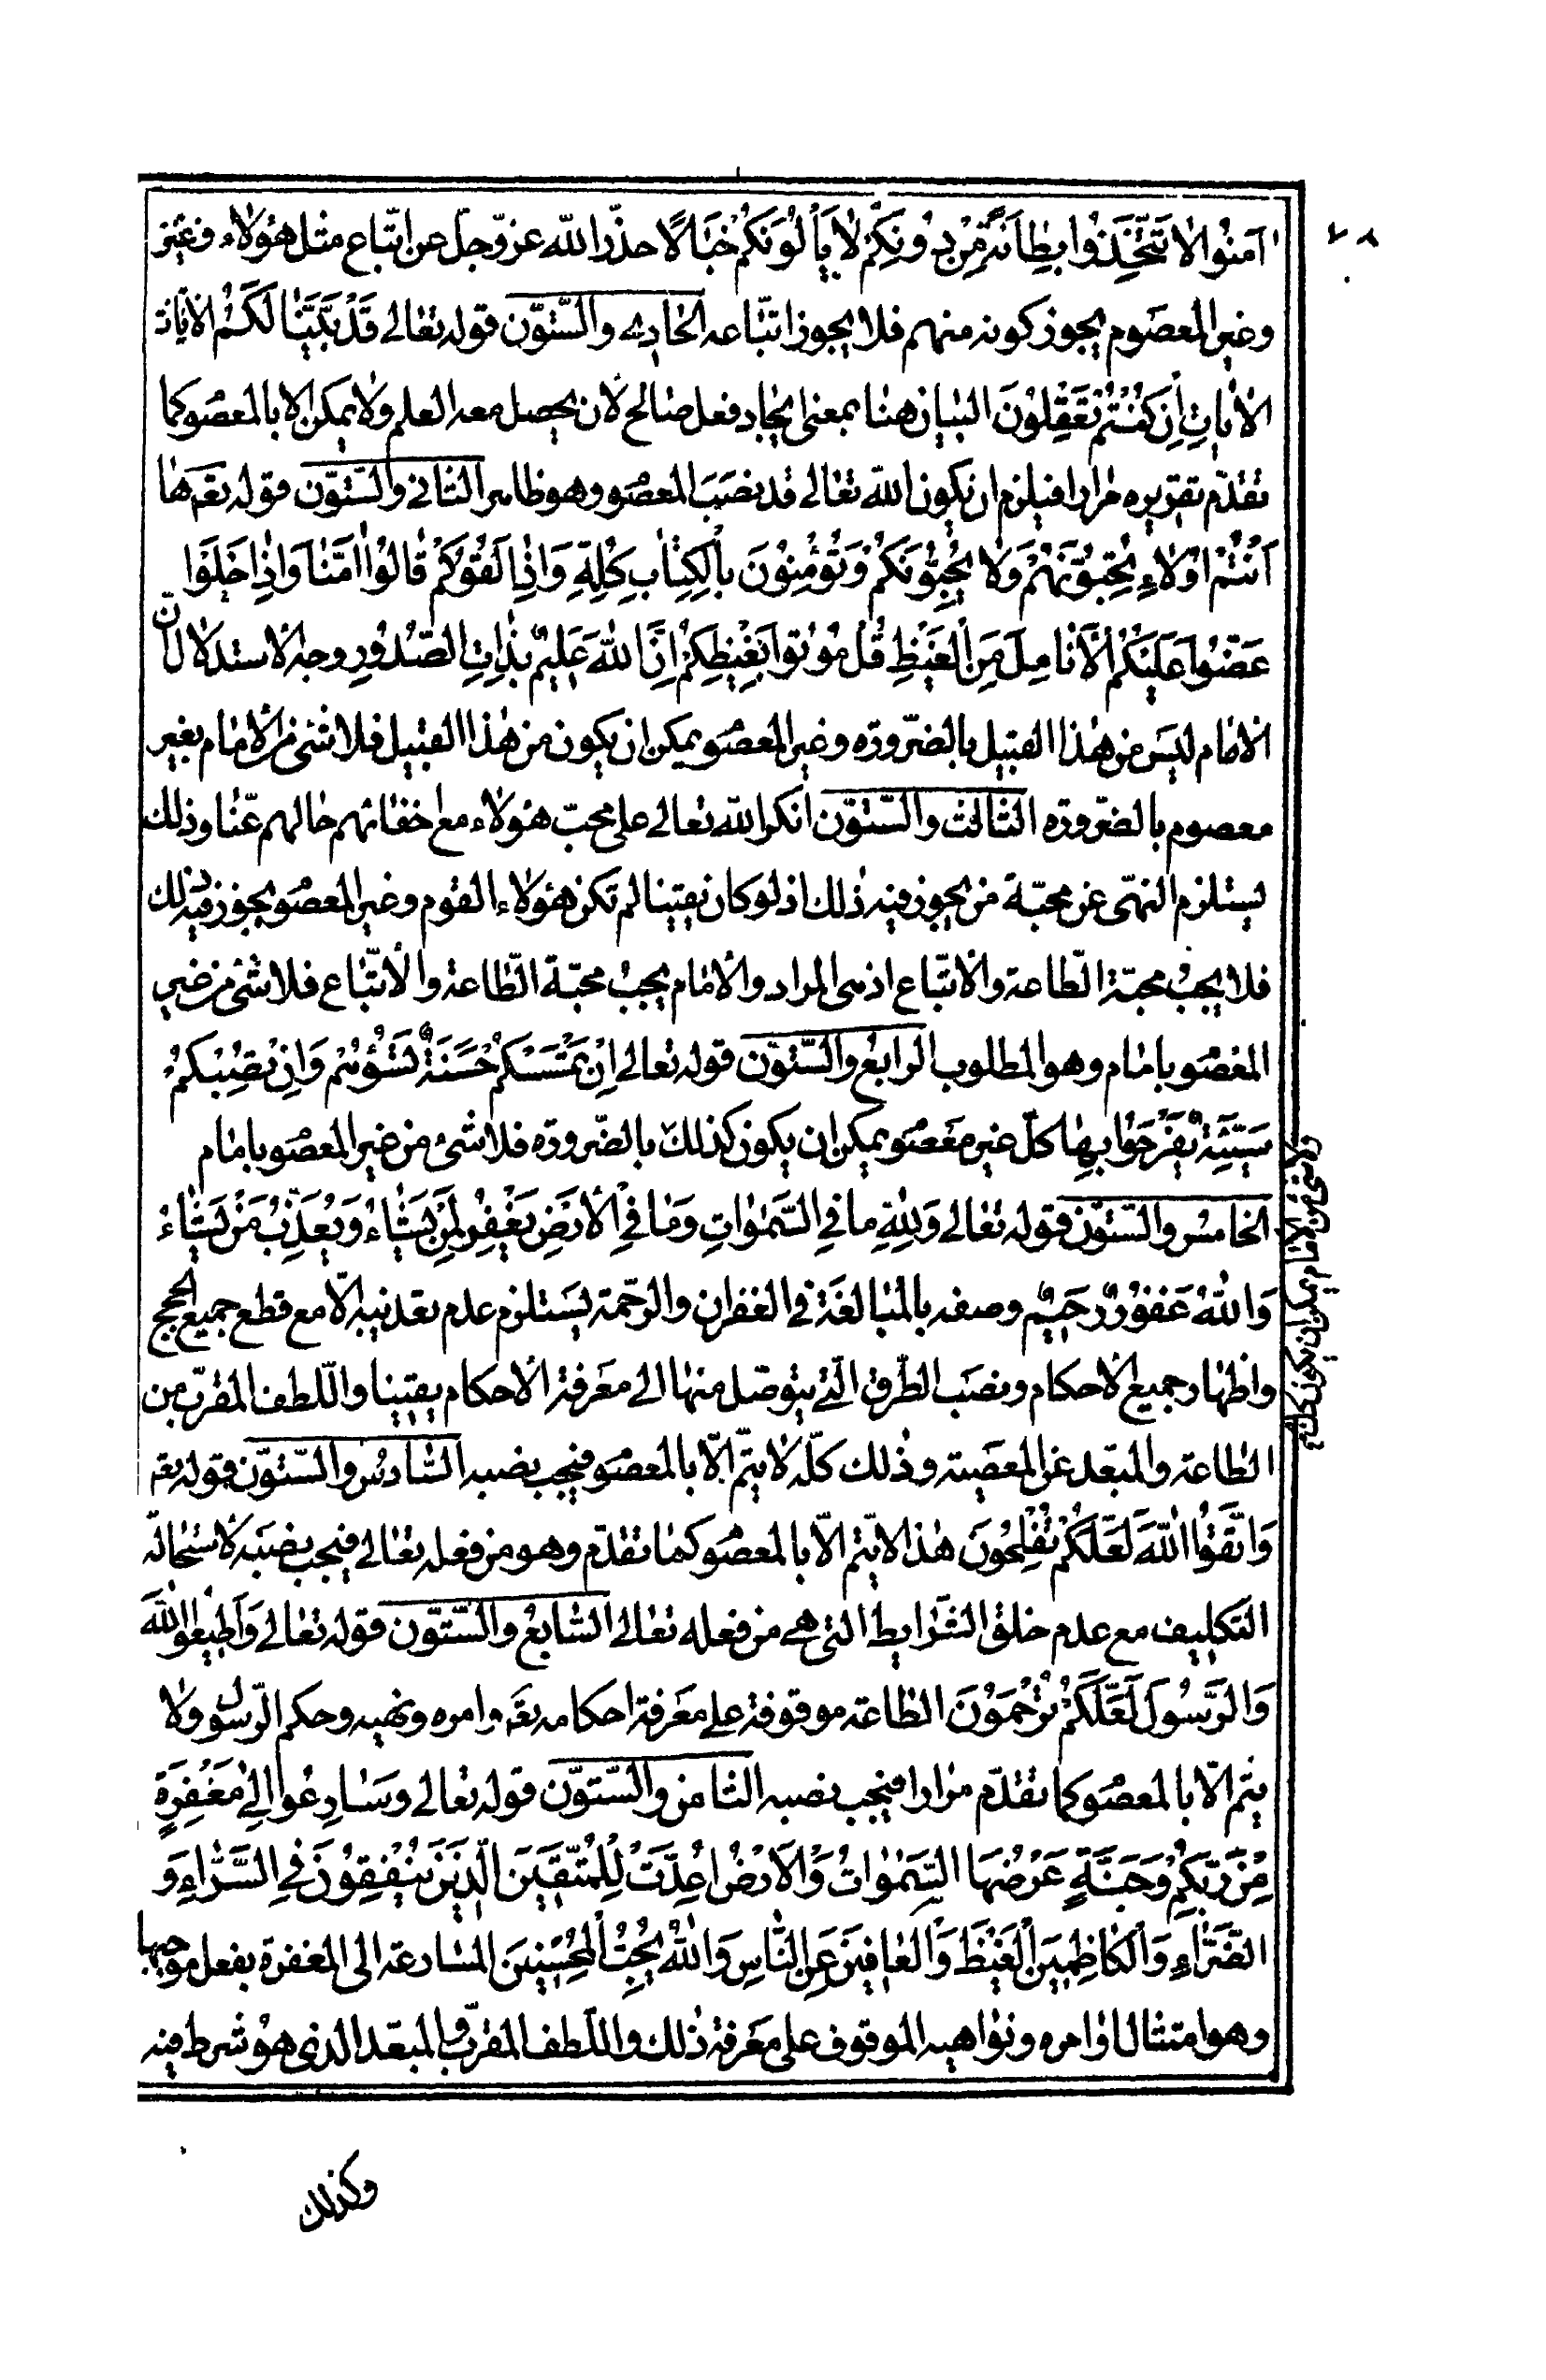 ٧٨
آمنوا لا تَتَّخِذُوا بِطانَةً مِنْ دُونِكُمْ لا يَأْلُونَكُمْ خَبَالًا حذّر الله عز وجلّ عن اتّباع مثل هؤلاء وغير
وغير المعصوم يجوز كونه منهم فلا يجوز اتّباعه الحادي والستّون قوله تعالى قَدْ بَيَّنَّا لَكُمُ الآيات
الآياتِ إِنْ كُنْتُمْ تَعْقِلُونَ البيان هنا بمعنى ايجاد فعل صالح لأن يحصل معه العلم ولا يمكن الا بالمعصو كما
تقدّم تقريره مرارا فيلزم ان يكون الله تعالى قد نصب المعصو وهو ظاهر الثاني والستّون قوله تعَ ها
أَنْتُمْ أُولاءِ تُحِبُّونَهُمْ وَلا يُحِبُّونَكُمْ وَتُؤْمِنُونَ بِالْكِتابِ كُلِّهِ وَإِذا لَقُوكُمْ قالُوا امَنَّا وَإِذا خَلَوْا
عَضُّوا عَلَيْكُمُ الْأَنامِلَ مِنَ الْغَيْظِ قُلْ مُوتُوا بِغَيْظِكُمْ إِنَّ اللهَ عَلِيمٌ بِذاتِ الصُّدُورِ وجه الاستدلال انّ
الامام ليس من هذا القبيل بالضّرورة وغير المعصو يمكن ان يكون من هذا القبيل فلا شئ من الامام بغير
معصوم بالضرورة الثالث والستّون انكر الله تعالى على محبّ هؤلاء مع خفائهم حالهم عنّا وذلك
يستلزم النهى عن محبّة من يجوز فيه ذلك اذ لو كان يقينا لم تكن هؤلاء القوم وغير المعصو يجوز فيه ذلك
فلا يجب محبّة الطّاعة والاتّباع اذ هى المراد والامام يجب محبّة الطّاعة والاتّباع فلا شئ من غير
المعصو بامام وهو المطلوب الرابع والستّون قوله تعالى إِنْ تَمْسَسْكُمْ حَسَنَةٌ تَسُؤْهُمْ وَإِنْ تُصِبْكُمْ
سَيِّئَةٌ يَفْرَحُوا بِها كلّ غير معصو يمكن ان يكون كذلك بالضّرورة فلا شئ من غير المعصو بامام
ولا شئ من الامام يمكن ان يكون كذلك
الخامس والستّون قوله تعالى وَلِلّهِ ما فِي السَّمواتِ وَما فِي الْأَرْضِ يَغْفِرُ لِمَنْ يَشاءُ وَيُعَذِّبُ مَنْ يَشاءُ
وَاللهُ غَفُورٌ رَحِيمٌ وصفه بالمبالغة في الغفران والرحمة يستلزم عدم تعذيبه الّا مع قطع جميع الحجج
واظهار جميع الاحكام ونصب الطّرق الّتي يتوصّل منها الى معرفة الاحكام يقينا واللّطف المقرّب من
الطاعة والمبعّد عن المعصية وذلك كلّه لا يتمّ الّا بالمعصو فيجب نصبه السّادس والستّون قوله تعَ
وَاتَّقُوا اللهَ لَعَلَّكُمْ تُفْلِحُونَ هذا لا يتم الّا بالمعصو كما تقدّم وهو من فعله تعالى فيجب نصبه لاستحالة
التكليف مع عدم خلق الشّرايط التى هي من فعله تعالى السّابع والستّون قوله تعالى وَأَطِيعُوا اللهَ
وَالرَّسُولَ لَعَلَّكُمْ تُرْحَمُونَ الطاعة موقوفة على معرفة احكامه تعَ وامره ونهيه وحكم الرّسول ولا
يتم الّا بالمعصو كما تقدّم مرارا فيجب نصبه الثامن والستّون قوله تعالى وسَارِعُوا إِلى مَغْفِرَةٍ
مِنْ رَبِّكُمْ وَجَنَّةٍ عَرْضُهَا السَّمواتُ وَالْأَرْضُ أُعِدَّتْ لِلْمُتَّقِينَ الَّذِينَ يُنْفِقُونَ فِي السَّرَّاءِ وَ
الضَّرَّاءِ وَالْكاظِمِينَ الْغَيْظَ وَالْعافِينَ عَنِ النَّاسِ وَاللهُ يُحِبُّ الْمُحْسِنِينَ المسارعة الى المغفرة بفعل موجبها
وهو امتثال اوامره ونواهيه الموقوف على معرفة ذلك واللّطف المقرّب والمبعّد الذى هو شرط فيه
وكذلك